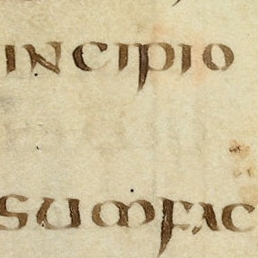 INCIPIO
SUMFAC